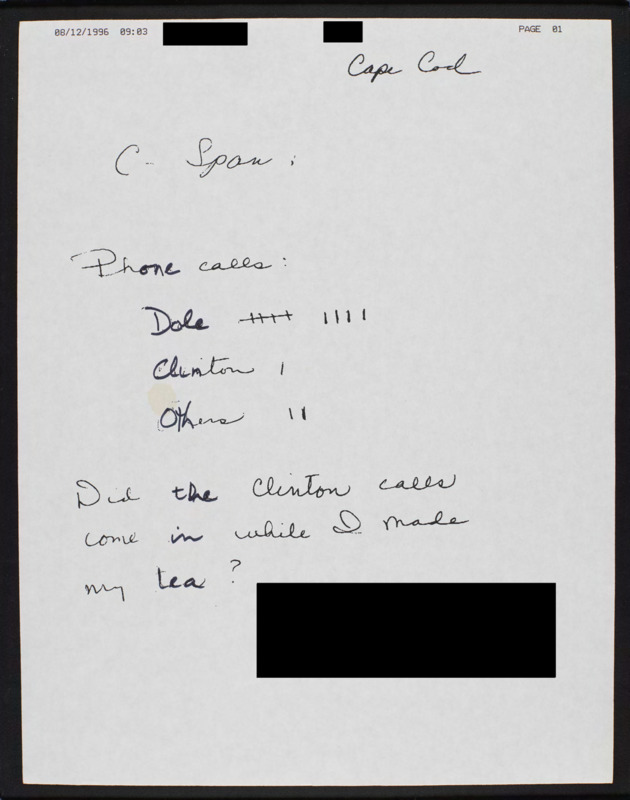 08/12/1996 09:03 PAGE 01
Cape Cod
C-Span:
Phone calls:
Dole ++++ ||||
Clinton |
Others ||
Did the Clinton calls
come in while I made
my tea?